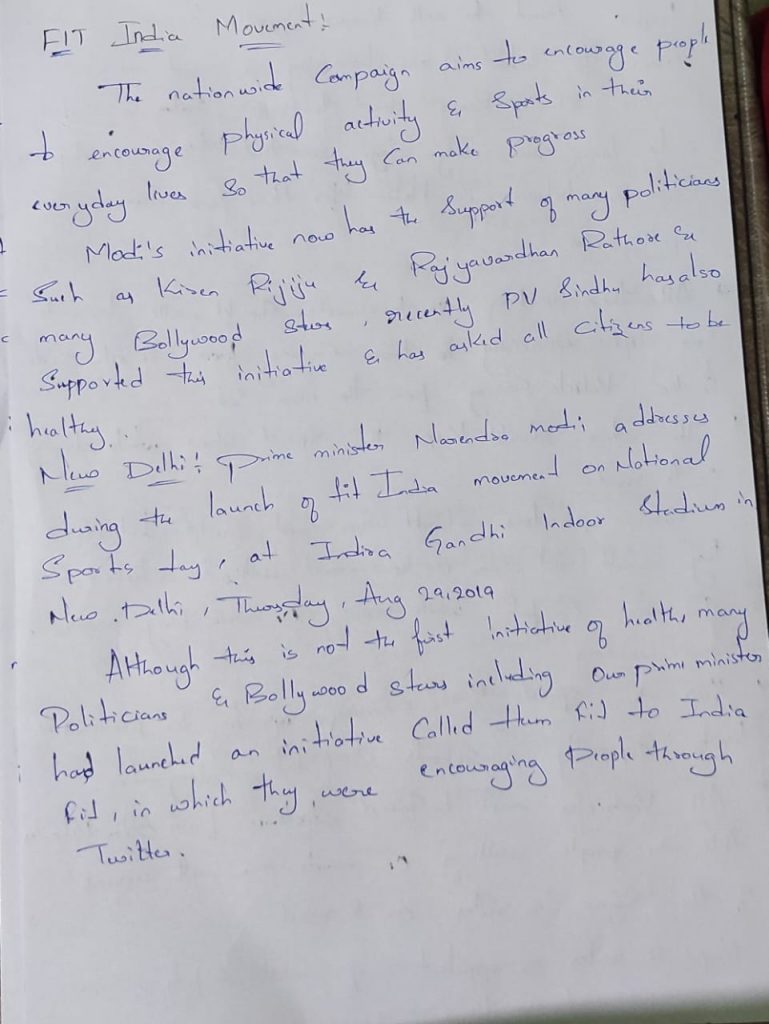 FIT India Movement:
The nationwide Campaign aims to encourage people
to encourage physical activity & Sports in their
everyday lives So that they Can make progross
Modi's initiative now has the Support of many politicians
Such as Kiren Rijiju & Rajyavardhan Rathore &
many Bollywood stars, recently PV Sindhu has also
Supported this initiative & has asked all citizens to be
healthy.
New Delhi: prime minister Narendra modi addresses
during the launch of fit India movement on National
Sports day, at Indira Gandhi Indoor Stadium in
New Delhi, Thursday, Aug 29, 2019
Although this is not the first Initiative of health, many
Politicians & Bollywood stars including Our prime minister
had launched an initiative Called Hum Fit to India
Fit, in which they were encouraging People through
Twitter.